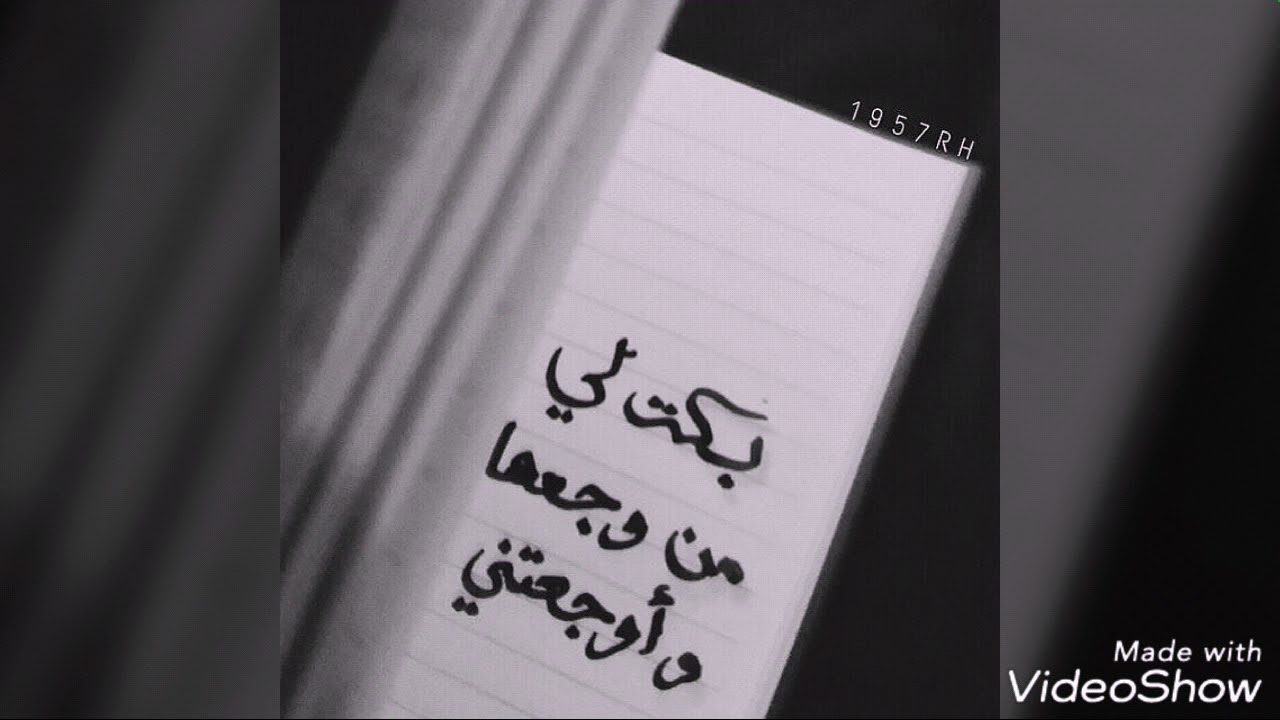 1957RH
بكت لي
من وجعها
و أوجعتني
Made with
VideoShow